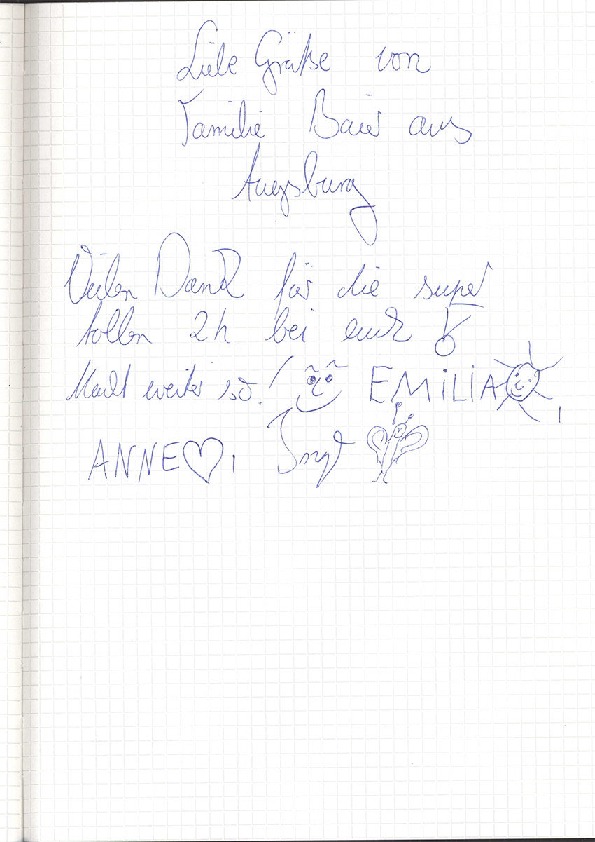 Liebe Grüße von
Familie Baier aus
Augsburg
Vielen Dank für die super
tollen 2h bei euch
Macht weiter so!
EMiLiA,
ANNE,